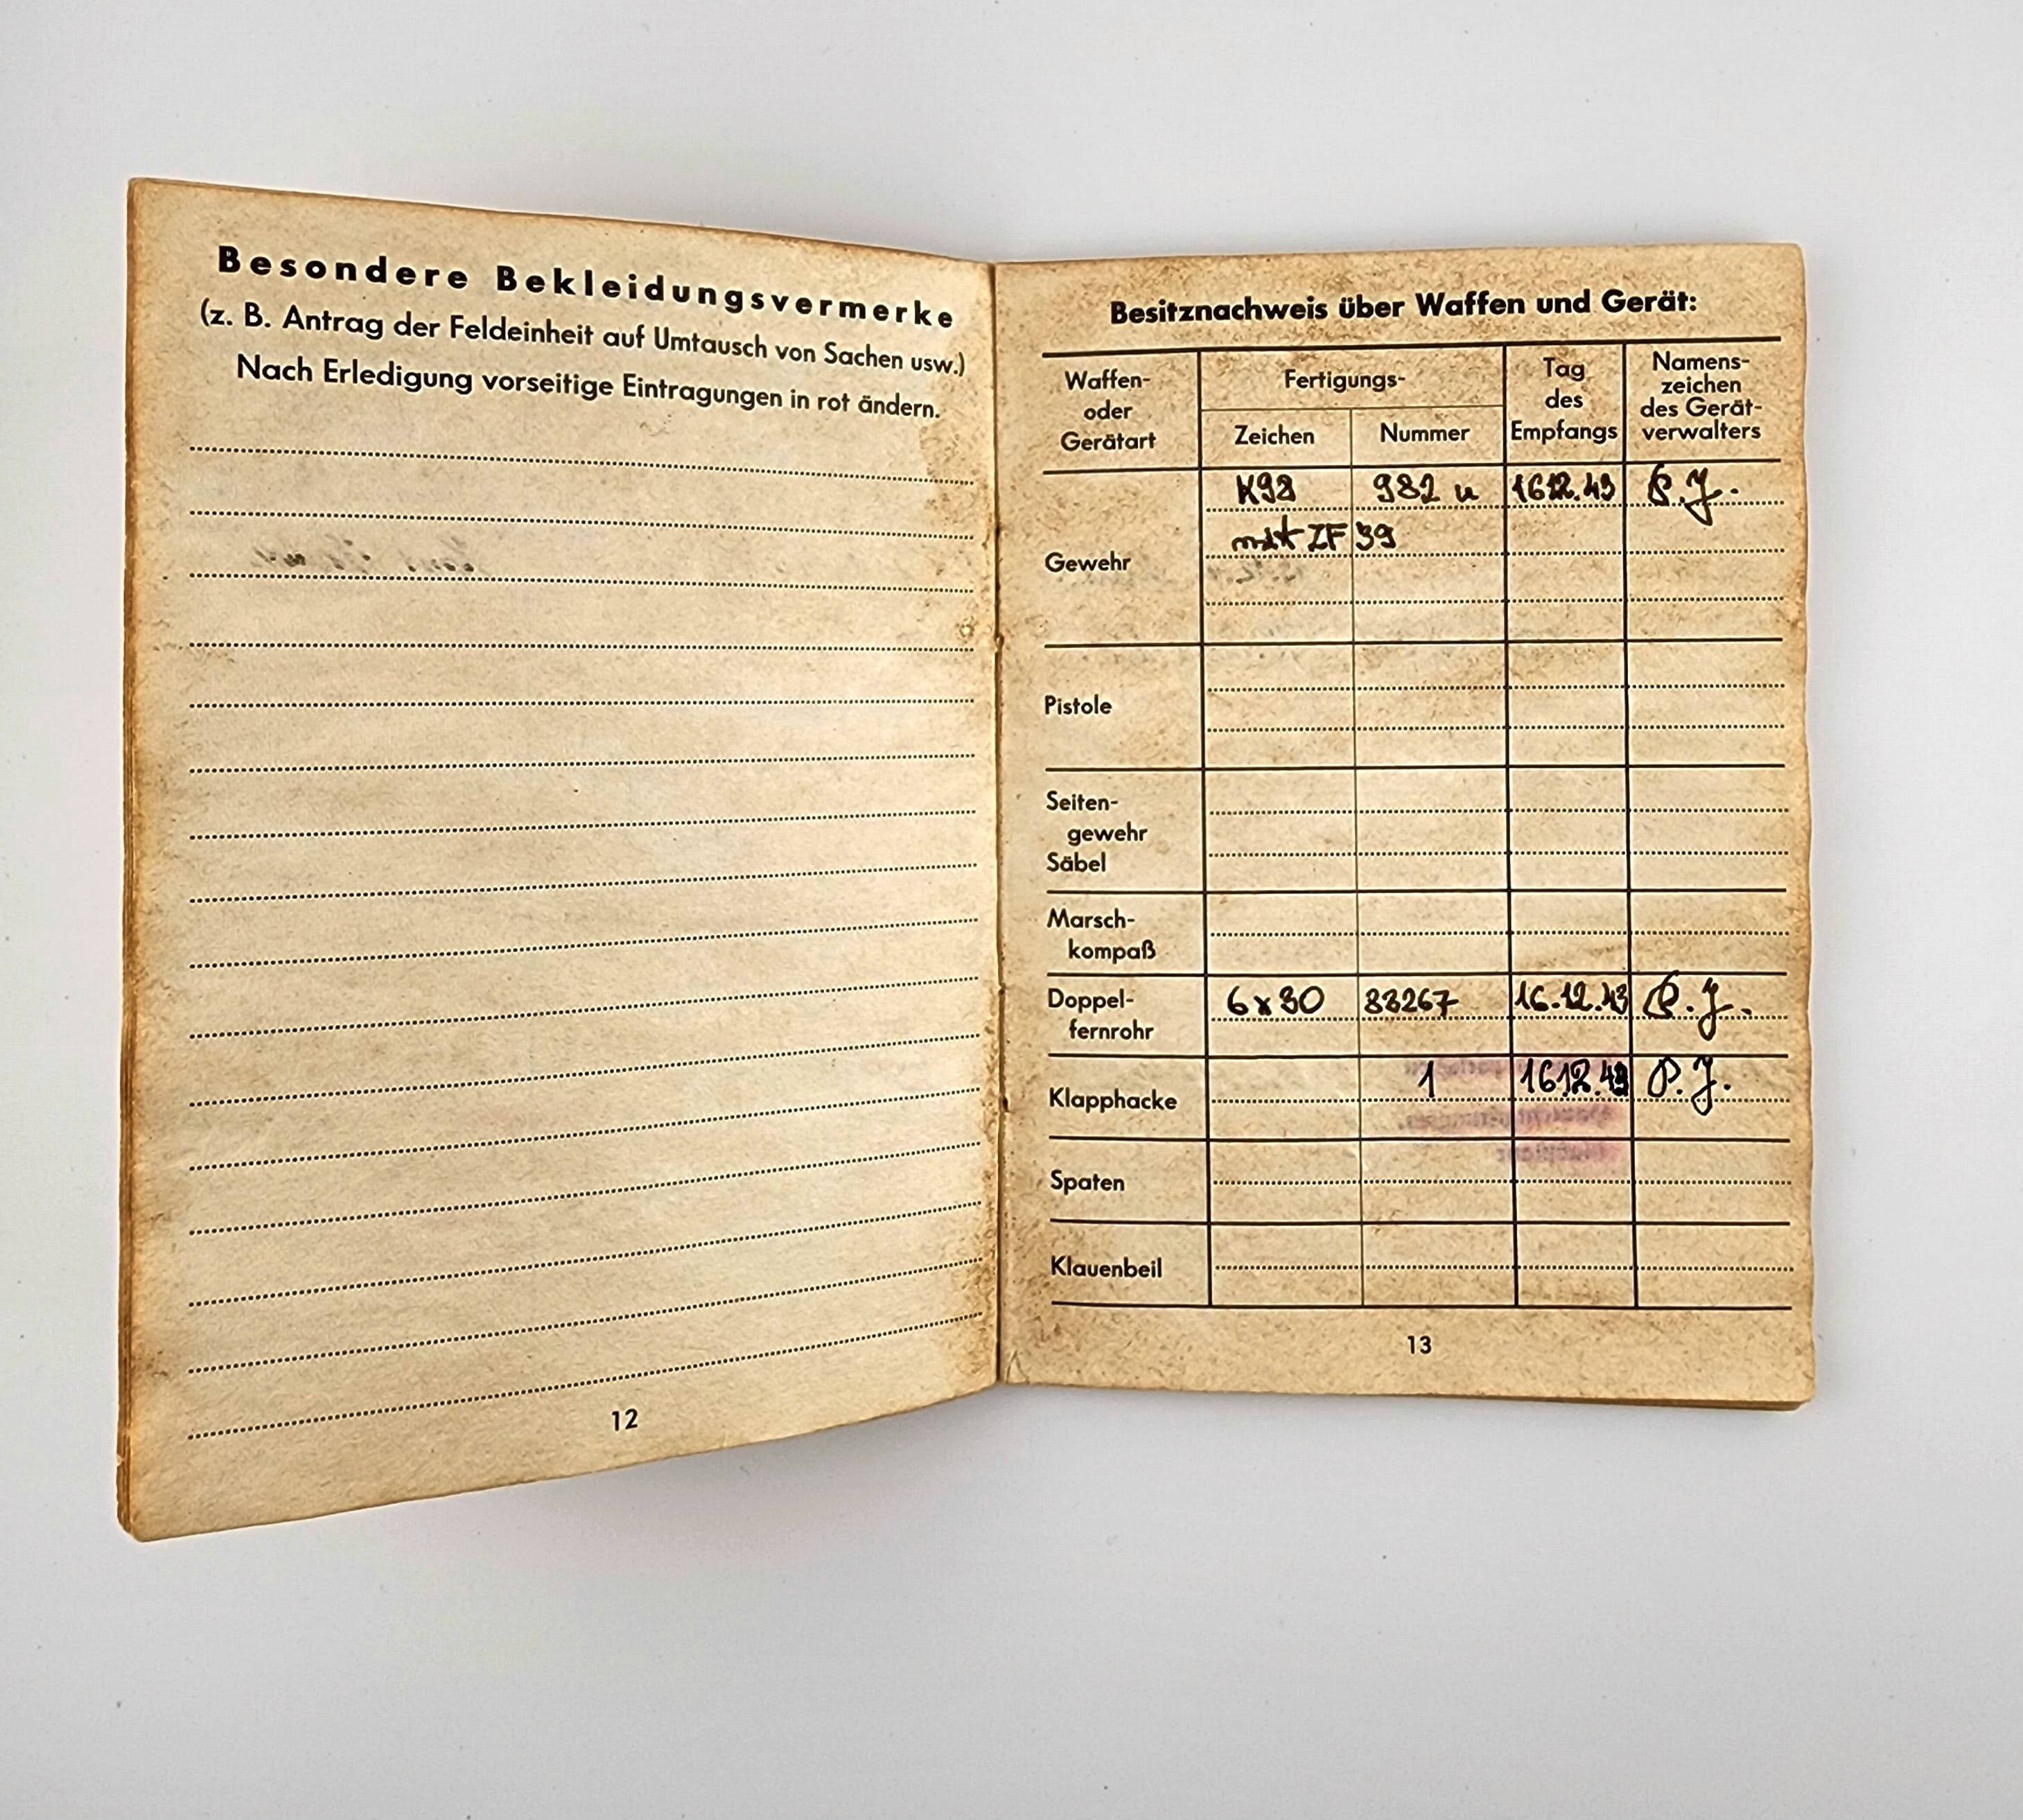 Besondere Bekleidungsvermerke
(z. B. Antrag der Feldeinheit auf Umtausch von Sachen usw.)
Nach Erledigung vorseitige Eintragungen in rot ändern.
12
Besitznachweis über Waffen und Gerät:
Waffen- oder Gerätart | Fertigungs- Zeichen | Nummer | Tag des Empfangs | Namens- zeichen des Gerät- verwalters
Gewehr | K98 | 982 u | 16.12.43 | P.J.
mit ZF 39
Pistole
Seiten-
gewehr
Säbel
Marsch-
kompaß
Doppel- fernrohr | 6x30 | 33267 | 16.12.43 | P.J.
Klapphacke | 1 | 16.12.43 | P.J.
Spaten
Klauenbeil
13